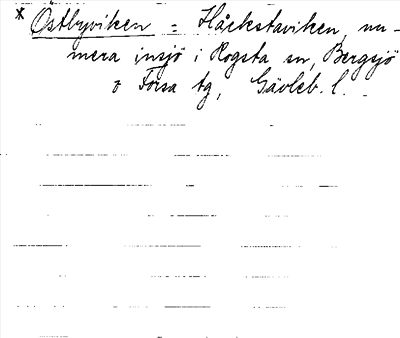 * Östbyviken = Håckstaviken, nu-
mera insjö i Rogsta sn, Bergsjö
o Forsa tg, Gävleb. l.